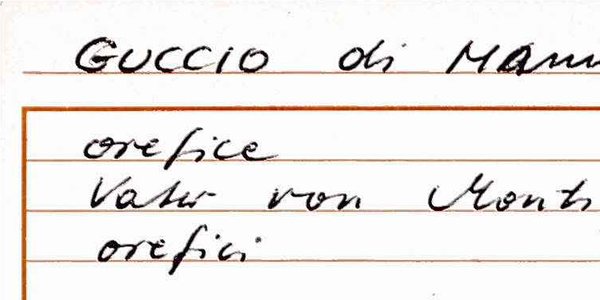 GUCCIO di Mann
orefice
Vater von Monti
orefici